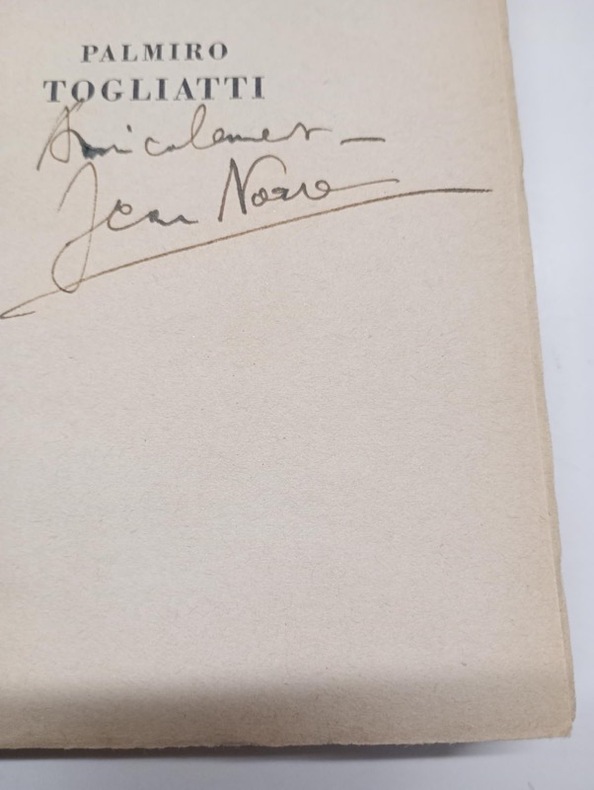 PALMIRO
TOGLIATTI
Amicalement —
Jean